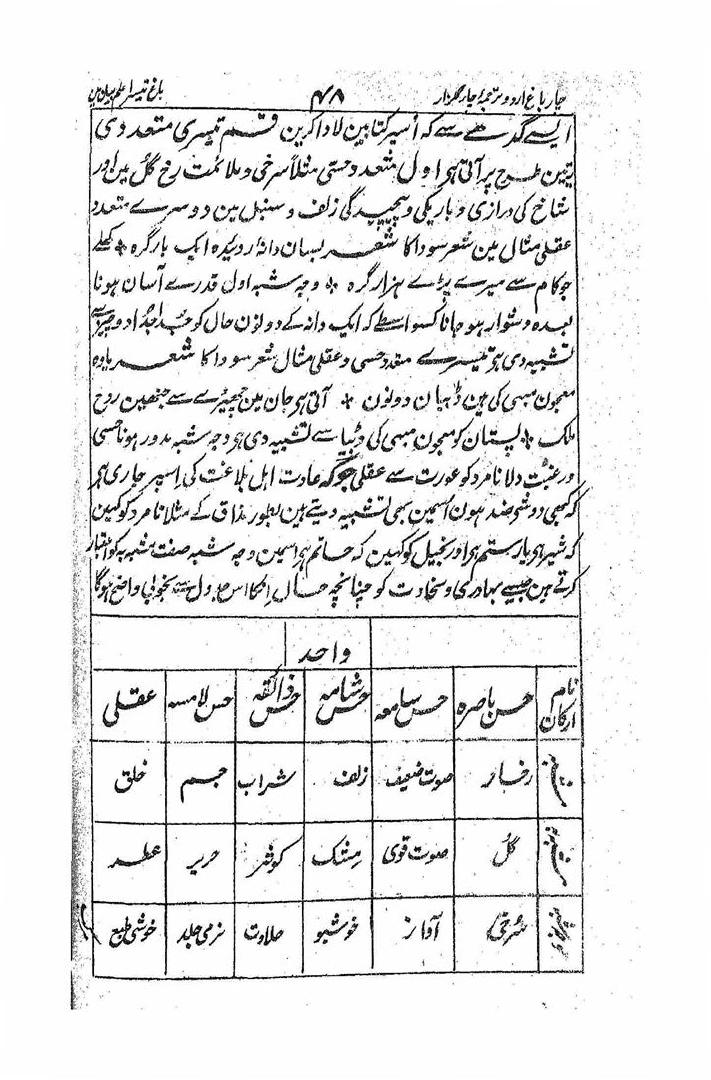 چار باغ اردو ترجمہٴ چار گلزار ۴۸ باغ تیسرا علم بیان مین
ایسے گدھے سے کہ اُسپر کتابین لادا کرین قسم تیسری متعدد کی
تین طرح پر آتی ہی اول متعدد حسی مثلاً سرخی و ملائمت رخ گل مین اور
شاخ کی درازی و باریکی و پیچیدگی زلف و سنبل مین دوسرے متعدد
عقلی مثال مین شعر سودا کا شعر بسان دانہٴ روئیدہ ایک بار گرہ * کھلے
جو کام سے میرے پڑے ہزار گرہ * وجہ شبہ اول قدرے آسان ہونا
بعدہ دشوار ہو جانا کسواسطے کہ ایک دانہ کے دونون حال کو جُدا جُدا دو چیز سے
تشبیہ دی ہی تیسرے متعدد حسی و عقلی مثال شعر سودا کا شعر یا وہ
معجون مبہی کی ہین ڈبیان دونون * آتی ہی جان مین چھیڑے سے جنھین روح
ملک * پستان کو معجون مبہی کی ڈبیا سے تشبیہ دی ہی وجہ شبہ مدور ہونا حسی
و رغبت دلانا مرد کو عورت سے عقلی جو کہ عادت اہل بلاغت کی اسپر جاری ہی
کہ کبھی دو شی ضد ہون اسمین بھی تشبیہ دیتے ہین بطور مذاق کے مثلاً نامرد کو کہین
کہ شیر ہی یا رستم ہی اور بخیل کو کہین کہ حاتم ہی اسمین وجہ شبہ صفت مشبہ بہ کو اعتبار
کرتے ہین جیسے بہادری و سخاوت کو چنانچہ حال اِنکا اس جدول سے بخوبی واضح ہوگا
واحد
نام ارکان حس باصرہ حس سامعہ حس شامہ حس ذائقہ حس لامسہ عقلی
مشبہ رخسار صوت ضعیف زلف شراب جسم خلق
مشبہ بہ گل صوت قوی مشک کوثر حریر عطر
وجہ شبہ سُرخی آواز خوشبو حلاوت نرمی جلد خوشی طبع